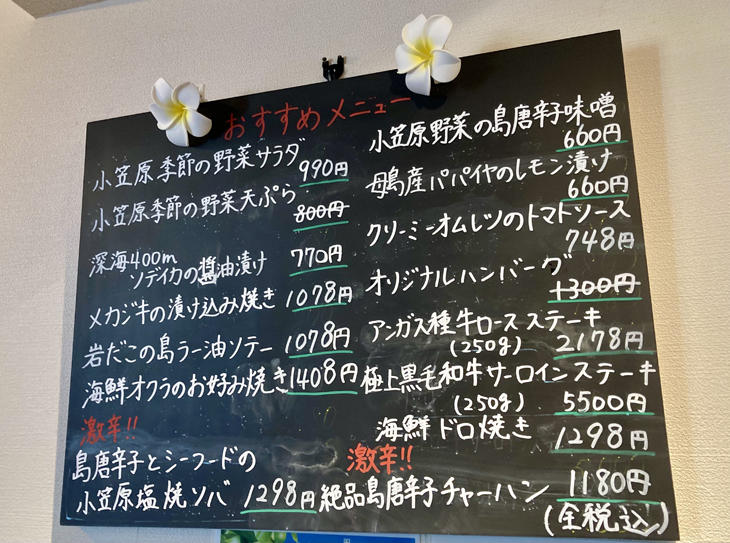 おすすめメニュー
小笠原季節の野菜サラダ 990円
小笠原季節の野菜天ぷら 800円
深海400m
ソデイカの醤油漬け 770円
メカジキの漬け込み焼き 1078円
岩だこの島ラー油ソテー 1078円
海鮮オクラのお好み焼き 1408円
激辛!!
島唐辛子とシーフードの
小笠原塩焼ソバ 1298円
小笠原野菜の島唐辛子味噌
660円
母島産パパイヤのレモン漬け
660円
クリーミーオムレツのトマトソース
748円
オリジナルハンバーグ
1300円
アンガス種牛ロースステーキ
(250g) 2178円
極上黒毛和牛サーロインステーキ
(250g) 5500円
海鮮ドロ焼き 1298円
激辛!!
絶品島唐辛子チャーハン 1180円
(全税込)